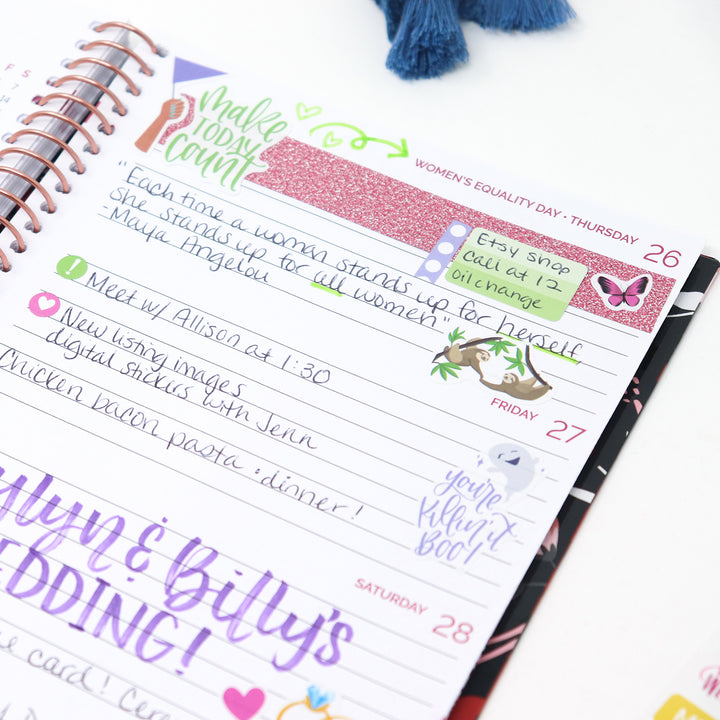 F S
7
14
make
TODAY
count
WOMEN'S EQUALITY DAY • THURSDAY 26
"Each time a woman stands up for herself
she stands up for all women"
-Maya Angelou
Etsy shop
call at 12
oil change
Meet w/ Allison at 1:30
New listing images
digital stickers with Jenn
FRIDAY 27
Chicken bacon pasta : dinner!
you're
killin' it
BOO!
& Billy's
WEDDING!
SATURDAY 28
card!